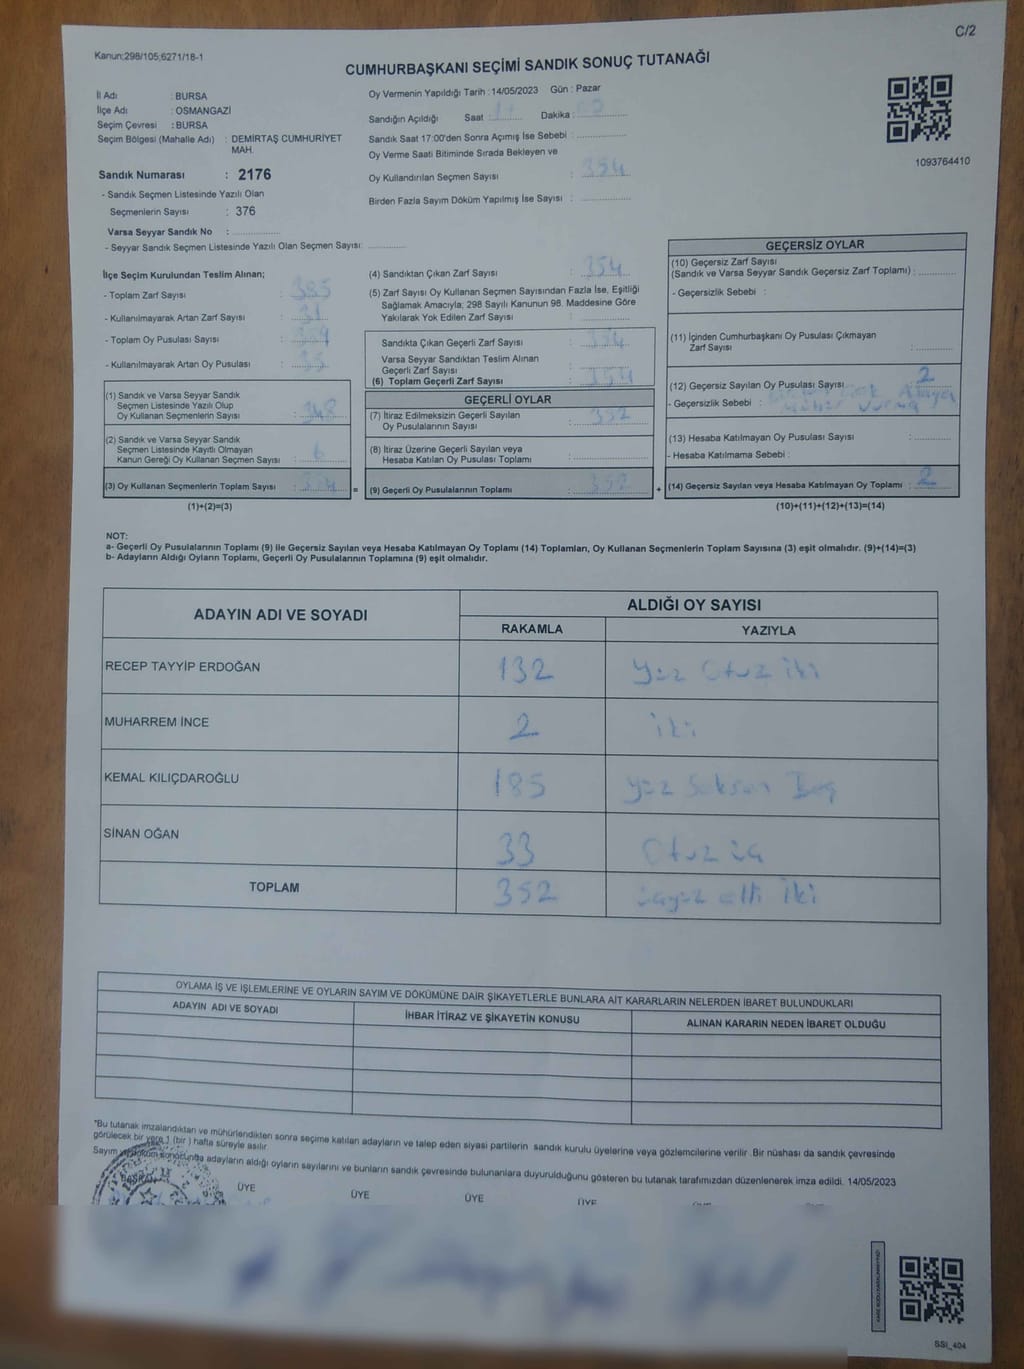 C/2
Kanun;298/105;6271/18-1
CUMHURBAŞKANI SEÇİMİ SANDIK SONUÇ TUTANAĞI
İl Adı : BURSA
İlçe Adı : OSMANGAZİ
Seçim Çevresi : BURSA
Seçim Bölgesi (Mahalle Adı) : DEMİRTAŞ CUMHURİYET
MAH.
Sandık Numarası : 2176
- Sandık Seçmen Listesinde Yazılı Olan
Seçmenlerin Sayısı : 376
Varsa Seyyar Sandık No :
- Seyyar Sandık Seçmen Listesinde Yazılı Olan Seçmen Sayısı:
Oy Vermenin Yapıldığı Tarih : 14/05/2023 Gün : Pazar
Sandığın Açıldığı Saat : Dakika :
Sandık Saat 17:00'den Sonra Açımış İse Sebebi :
Oy Verme Saati Bitiminde Sırada Bekleyen ve
Oy Kullandırılan Seçmen Sayısı : 354
Birden Fazla Sayım Döküm Yapılmış İse Sayısı :
1093764410
İlçe Seçim Kurulundan Teslim Alınan;
- Toplam Zarf Sayısı : 385
- Kullanılmayarak Artan Zarf Sayısı : 31
- Toplam Oy Pusulası Sayısı :
- Kullanılmayarak Artan Oy Pusulası : 35
(1) Sandık ve Varsa Seyyar Sandık
Seçmen Listesinde Yazılı Olup
Oy Kullanan Seçmenlerin Sayısı : 348
(2) Sandık ve Varsa Seyyar Sandık
Seçmen Listesinde Kayıtlı Olmayan
Kanun Gereği Oy Kullanan Seçmen Sayısı : 6
(3) Oy Kullanan Seçmenlerin Toplam Sayısı : 354 =
(1)+(2)=(3)
(4) Sandıktan Çıkan Zarf Sayısı : 354
(5) Zarf Sayısı Oy Kullanan Seçmen Sayısından Fazla İse, Eşitliği
Sağlamak Amacıyla; 298 Sayılı Kanunun 98. Maddesine Göre
Yakılarak Yok Edilen Zarf Sayısı :
Sandıkta Çıkan Geçerli Zarf Sayısı : 354
Varsa Seyyar Sandıktan Teslim Alınan
Geçerli Zarf Sayısı :
(6) Toplam Geçerli Zarf Sayısı : 354
GEÇERLİ OYLAR
(7) İtiraz Edilmeksizin Geçerli Sayılan
Oy Pusulalarının Sayısı : 352
(8) İtiraz Üzerine Geçerli Sayılan veya
Hesaba Katılan Oy Pusulası Toplamı :
(9) Geçerli Oy Pusulalarının Toplamı : 352 +
GEÇERSİZ OYLAR
(10) Geçersiz Zarf Sayısı
(Sandık ve Varsa Seyyar Sandık Geçersiz Zarf Toplamı) :
- Geçersizlik Sebebi :
(11) İçinden Cumhurbaşkanı Oy Pusulası Çıkmayan
Zarf Sayısı :
(12) Geçersiz Sayılan Oy Pusulası Sayısı : 2
- Geçersizlik Sebebi : Adaya
(13) Hesaba Katılmayan Oy Pusulası Sayısı :
- Hesaba Katılmama Sebebi :
(14) Geçersiz Sayılan veya Hesaba Katılmayan Oy Toplamı : 2
(10)+(11)+(12)+(13)=(14)
NOT:
a- Geçerli Oy Pusulalarının Toplamı (9) ile Geçersiz Sayılan veya Hesaba Katılmayan Oy Toplamı (14) Toplamları, Oy Kullanan Seçmenlerin Toplam Sayısına (3) eşit olmalıdır. (9)+(14)=(3)
b- Adayların Aldığı Oyların Toplamı, Geçerli Oy Pusulalarının Toplamına (9) eşit olmalıdır.
ADAYIN ADI VE SOYADI ALDIĞI OY SAYISI
RAKAMLA YAZIYLA
RECEP TAYYİP ERDOĞAN 132 Yüz Otuz iki
MUHARREM İNCE 2 iki
KEMAL KILIÇDAROĞLU 185 yüz Seksen Beş
SİNAN OĞAN 33 Otuz üç
TOPLAM 352 üçyüz elli iki
OYLAMA İŞ VE İŞLEMLERİNE VE OYLARIN SAYIM VE DÖKÜMÜNE DAİR ŞİKAYETLERLE BUNLARA AİT KARARLARIN NELERDEN İBARET BULUNDUKLARI
ADAYIN ADI VE SOYADI İHBAR İTİRAZ VE ŞİKAYETİN KONUSU ALINAN KARARIN NEDEN İBARET OLDUĞU
*Bu tutanak imzalandıktan ve mühürlendikten sonra seçime katılan adayların ve talep eden siyasi partilerin sandık kurulu üyelerine veya gözlemcilerine verilir. Bir nüshası da sandık çevresinde
görülecek bir yere 1 (bir ) hafta süreyle asılır.
Sayım ve döküm sonucunda adayların aldığı oyların sayılarını ve bunların sandık çevresinde bulunanlara duyurulduğunu gösteren bu tutanak tarafımızdan düzenlenerek imza edildi. 14/05/2023
BAŞKAN ÜYE ÜYE ÜYE ÜYE
SSİ_404